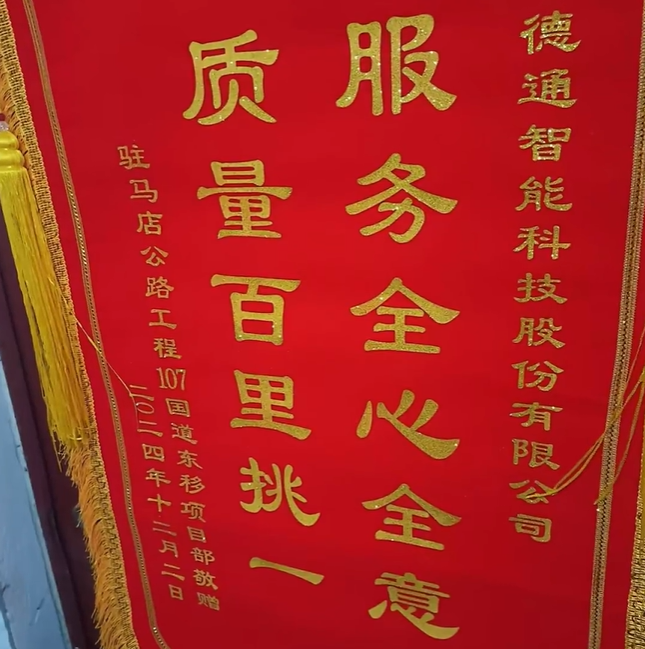 德通智能科技股份有限公司
服务全心全意
质量百里挑一
驻马店公路工程107国道东移项目部敬赠
二〇二四年十二月二日